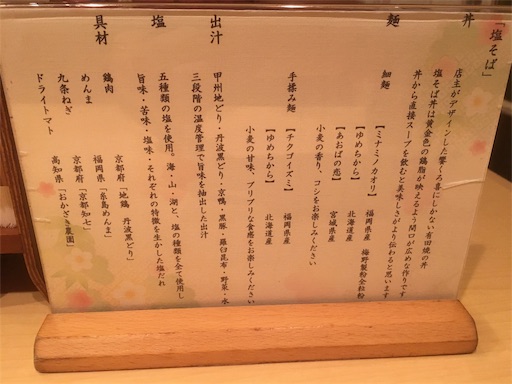 「塩そば」
丼
店主がデザインした響くろ喜にしかない有田焼の丼
塩そば丼は黄金色の鶏脂が映えるよう間口が広めな作りです
丼から直接スープを飲むと美味しさがより伝わると思います
麺
細麺
【ミナミノカオリ】 福岡県産 梅野製粉全粒粉
【ゆめちから】 北海道産
【あおばの恋】 宮城県産
小麦の香り、コシをお楽しみください
手揉み麺
【チクゴイズミ】 福岡県産
【ゆめちから】 北海道産
小麦の甘味、プリプリな食感をお楽しみください
出汁
甲州地どり・丹波黒どり・京鴨・黒豚・羅臼昆布・野菜・水
三段階の温度管理で旨味を抽出した出汁
塩
五種類の塩を使用。海・山・湖と、塩の種類を全て使用し
旨味・苦味・塩味・それぞれの特徴を生かした塩だれ
具材
鶏肉 京都府「地鶏 丹波黒どり」
めんま 福岡県「糸島めんま」
九条ねぎ 京都府「京都知七」
ドライトマト 高知県「おかざき農園」